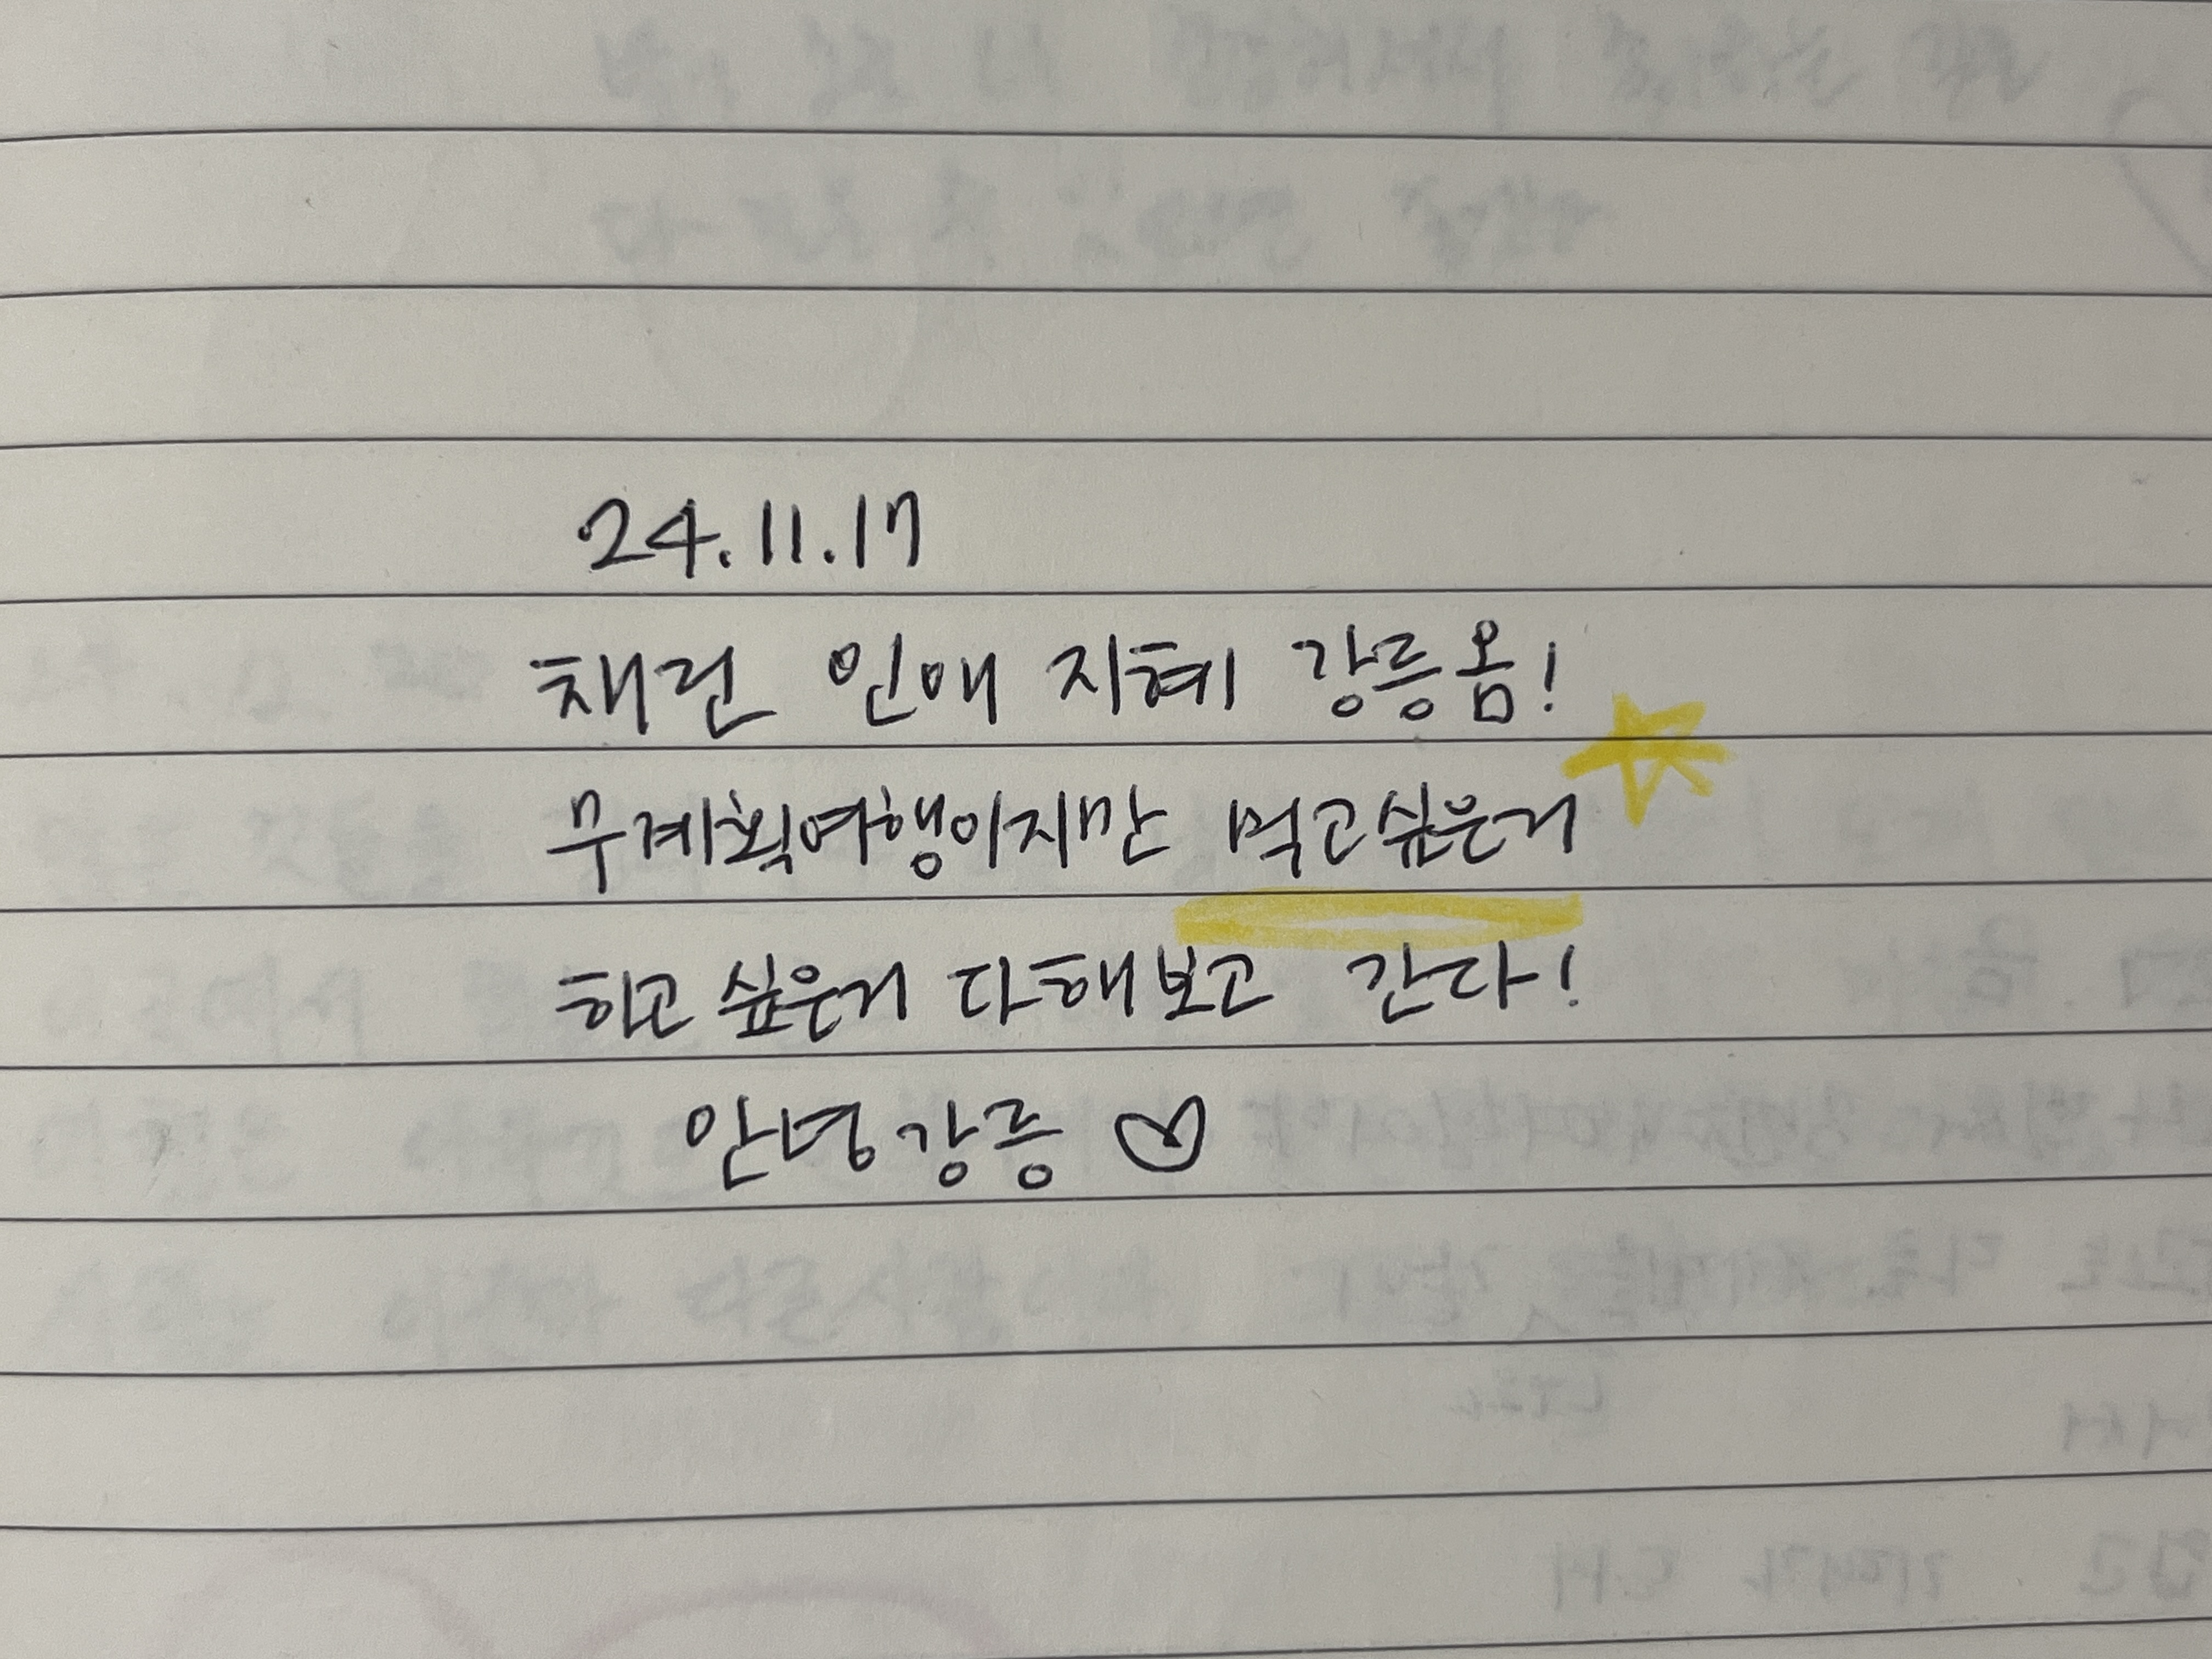 24.11.17
채린 인애 지혜 강릉옴!
무계획여행이지만 먹고싶은거
하고싶은거 다해보고 간다!
안녕강릉♡